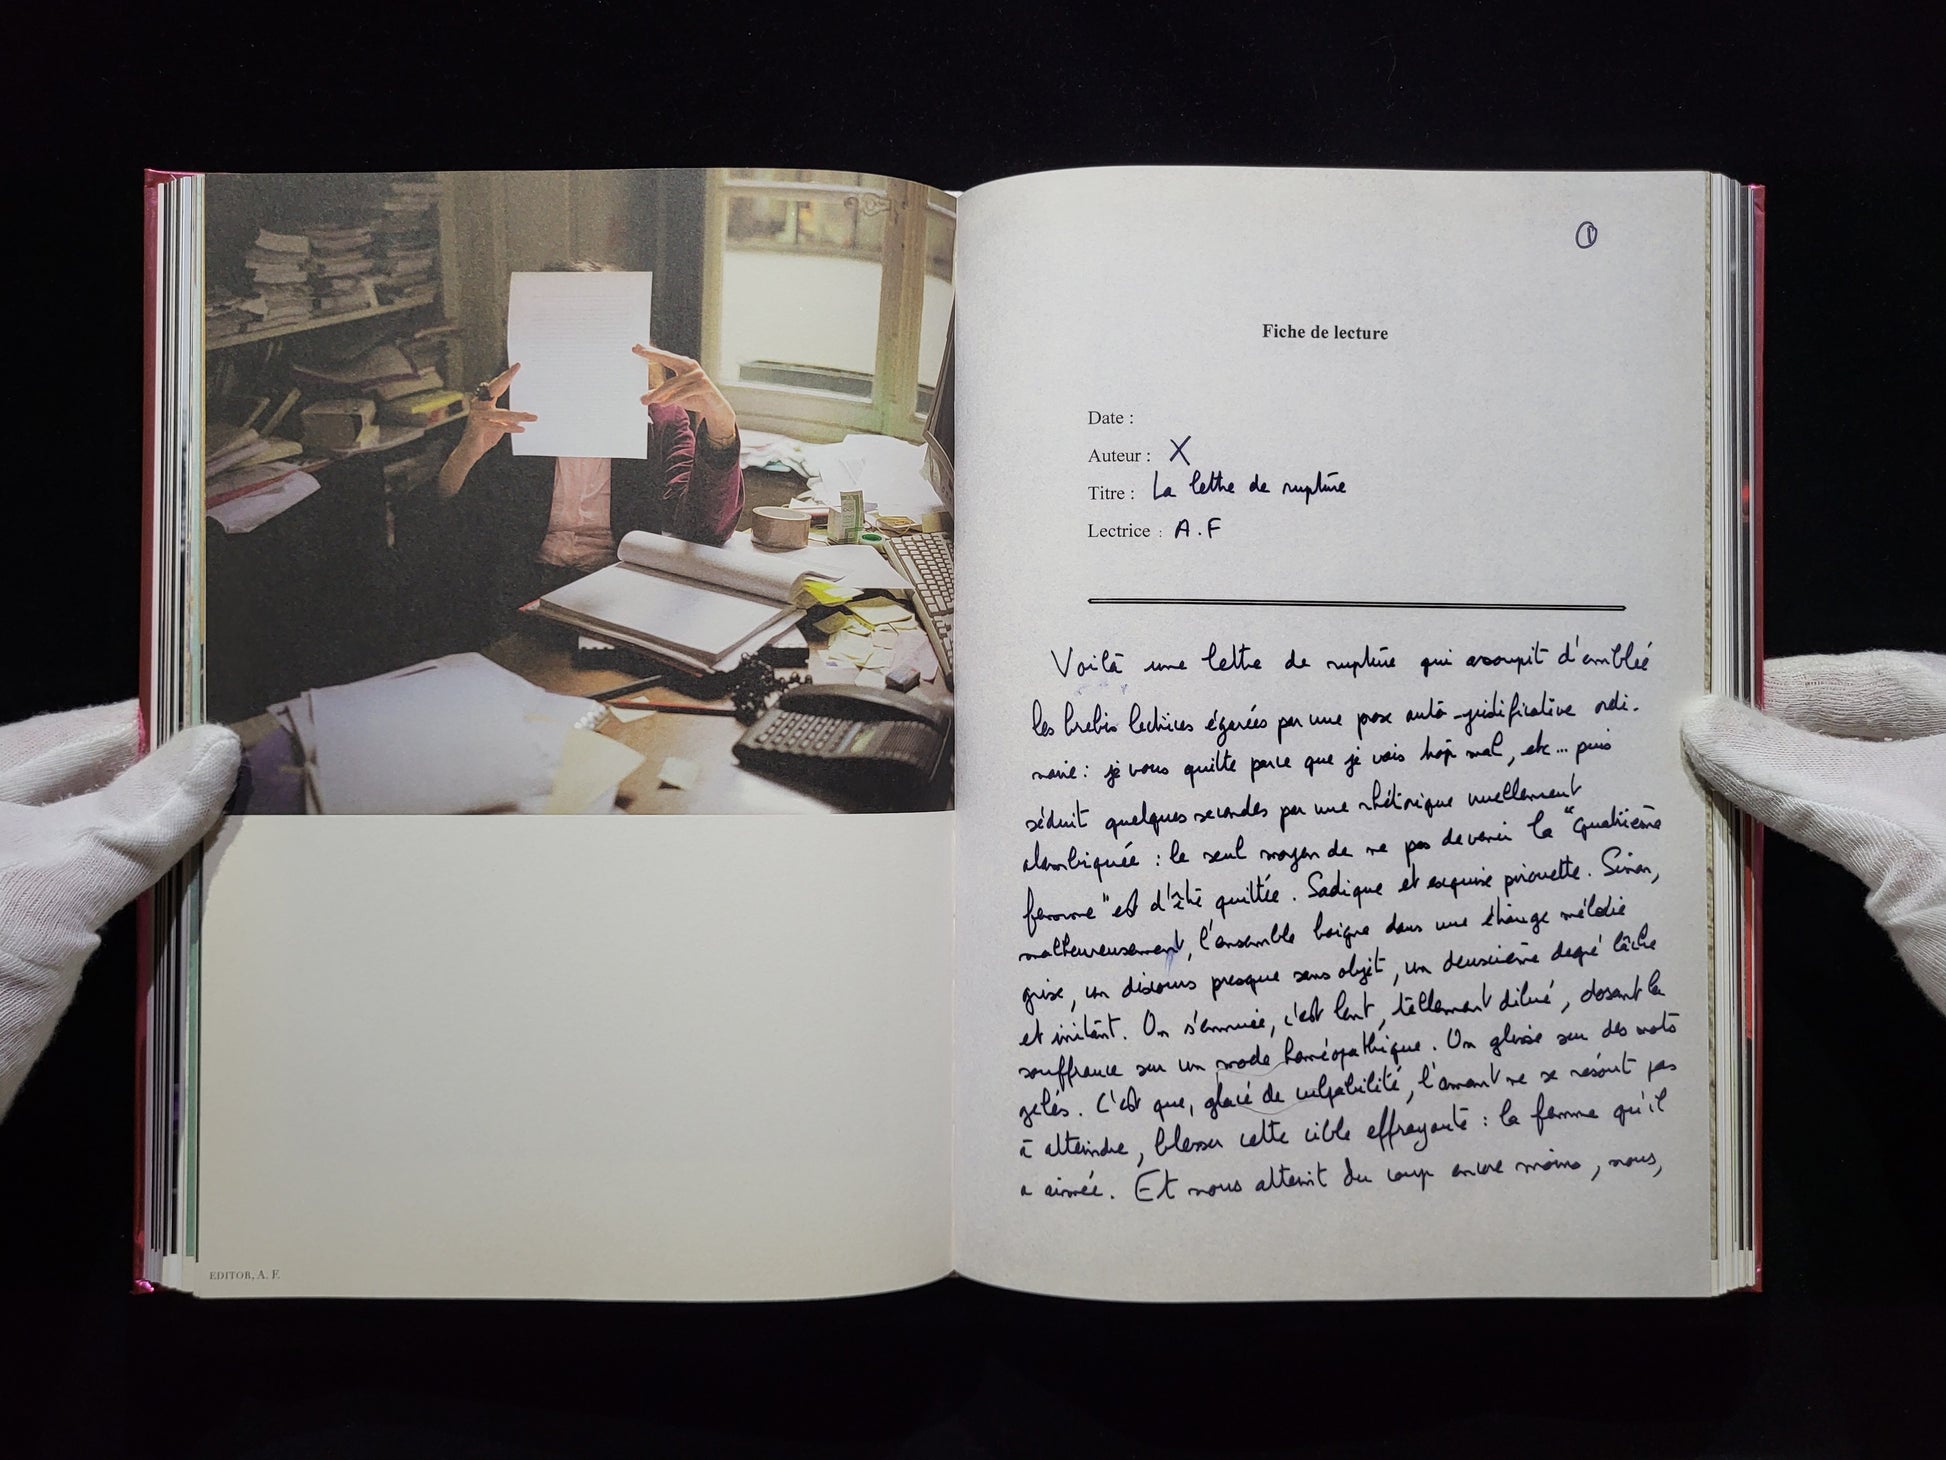 EDITOR, A. F.
①
Fiche de lecture
Date :
Auteur : X
Titre : La lettre de rupture
Lectrice : A.F
Voilà une lettre de rupture qui assoupit d'emblée
les brebis lectrices égarées par une prose auto-justificative ordi-
naire : je vous quitte parce que je vais trop mal, etc... puis
séduit quelques secondes par une rhétorique cruellement
alambiquée : le seul moyen de ne pas devenir la "quatrième
femme" est d'être quittée. Sadique et exquise pirouette. Sinon,
malheureusement, l'ensemble baigne dans une étrange mélodie
grise, un discours presque sans objet, un deuxième degré lâche
et irritant. On s'ennuie, c'est lent, tellement dilué, dosant la
souffrance sur un mode homéopathique. On glisse sur des mots
gelés. C'est que, glacé de culpabilité, l'amant ne se résout pas
à atteindre, blesser cette cible effrayante : la femme qu'il
a aimée. Et nous atteint du coup encore moins, nous,